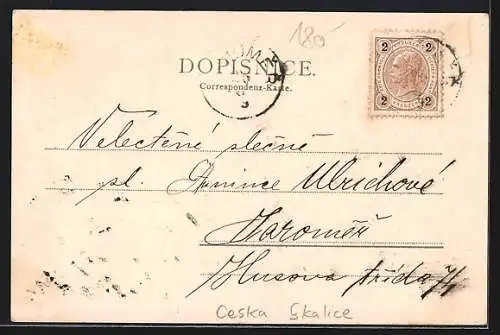 180
DOPISNICE.
Correspondenz-Karte.
2 2
2 2
Velectěné slečně
sl. Ulrichové
Jaroměř
Husova třída
Ceska Skalice